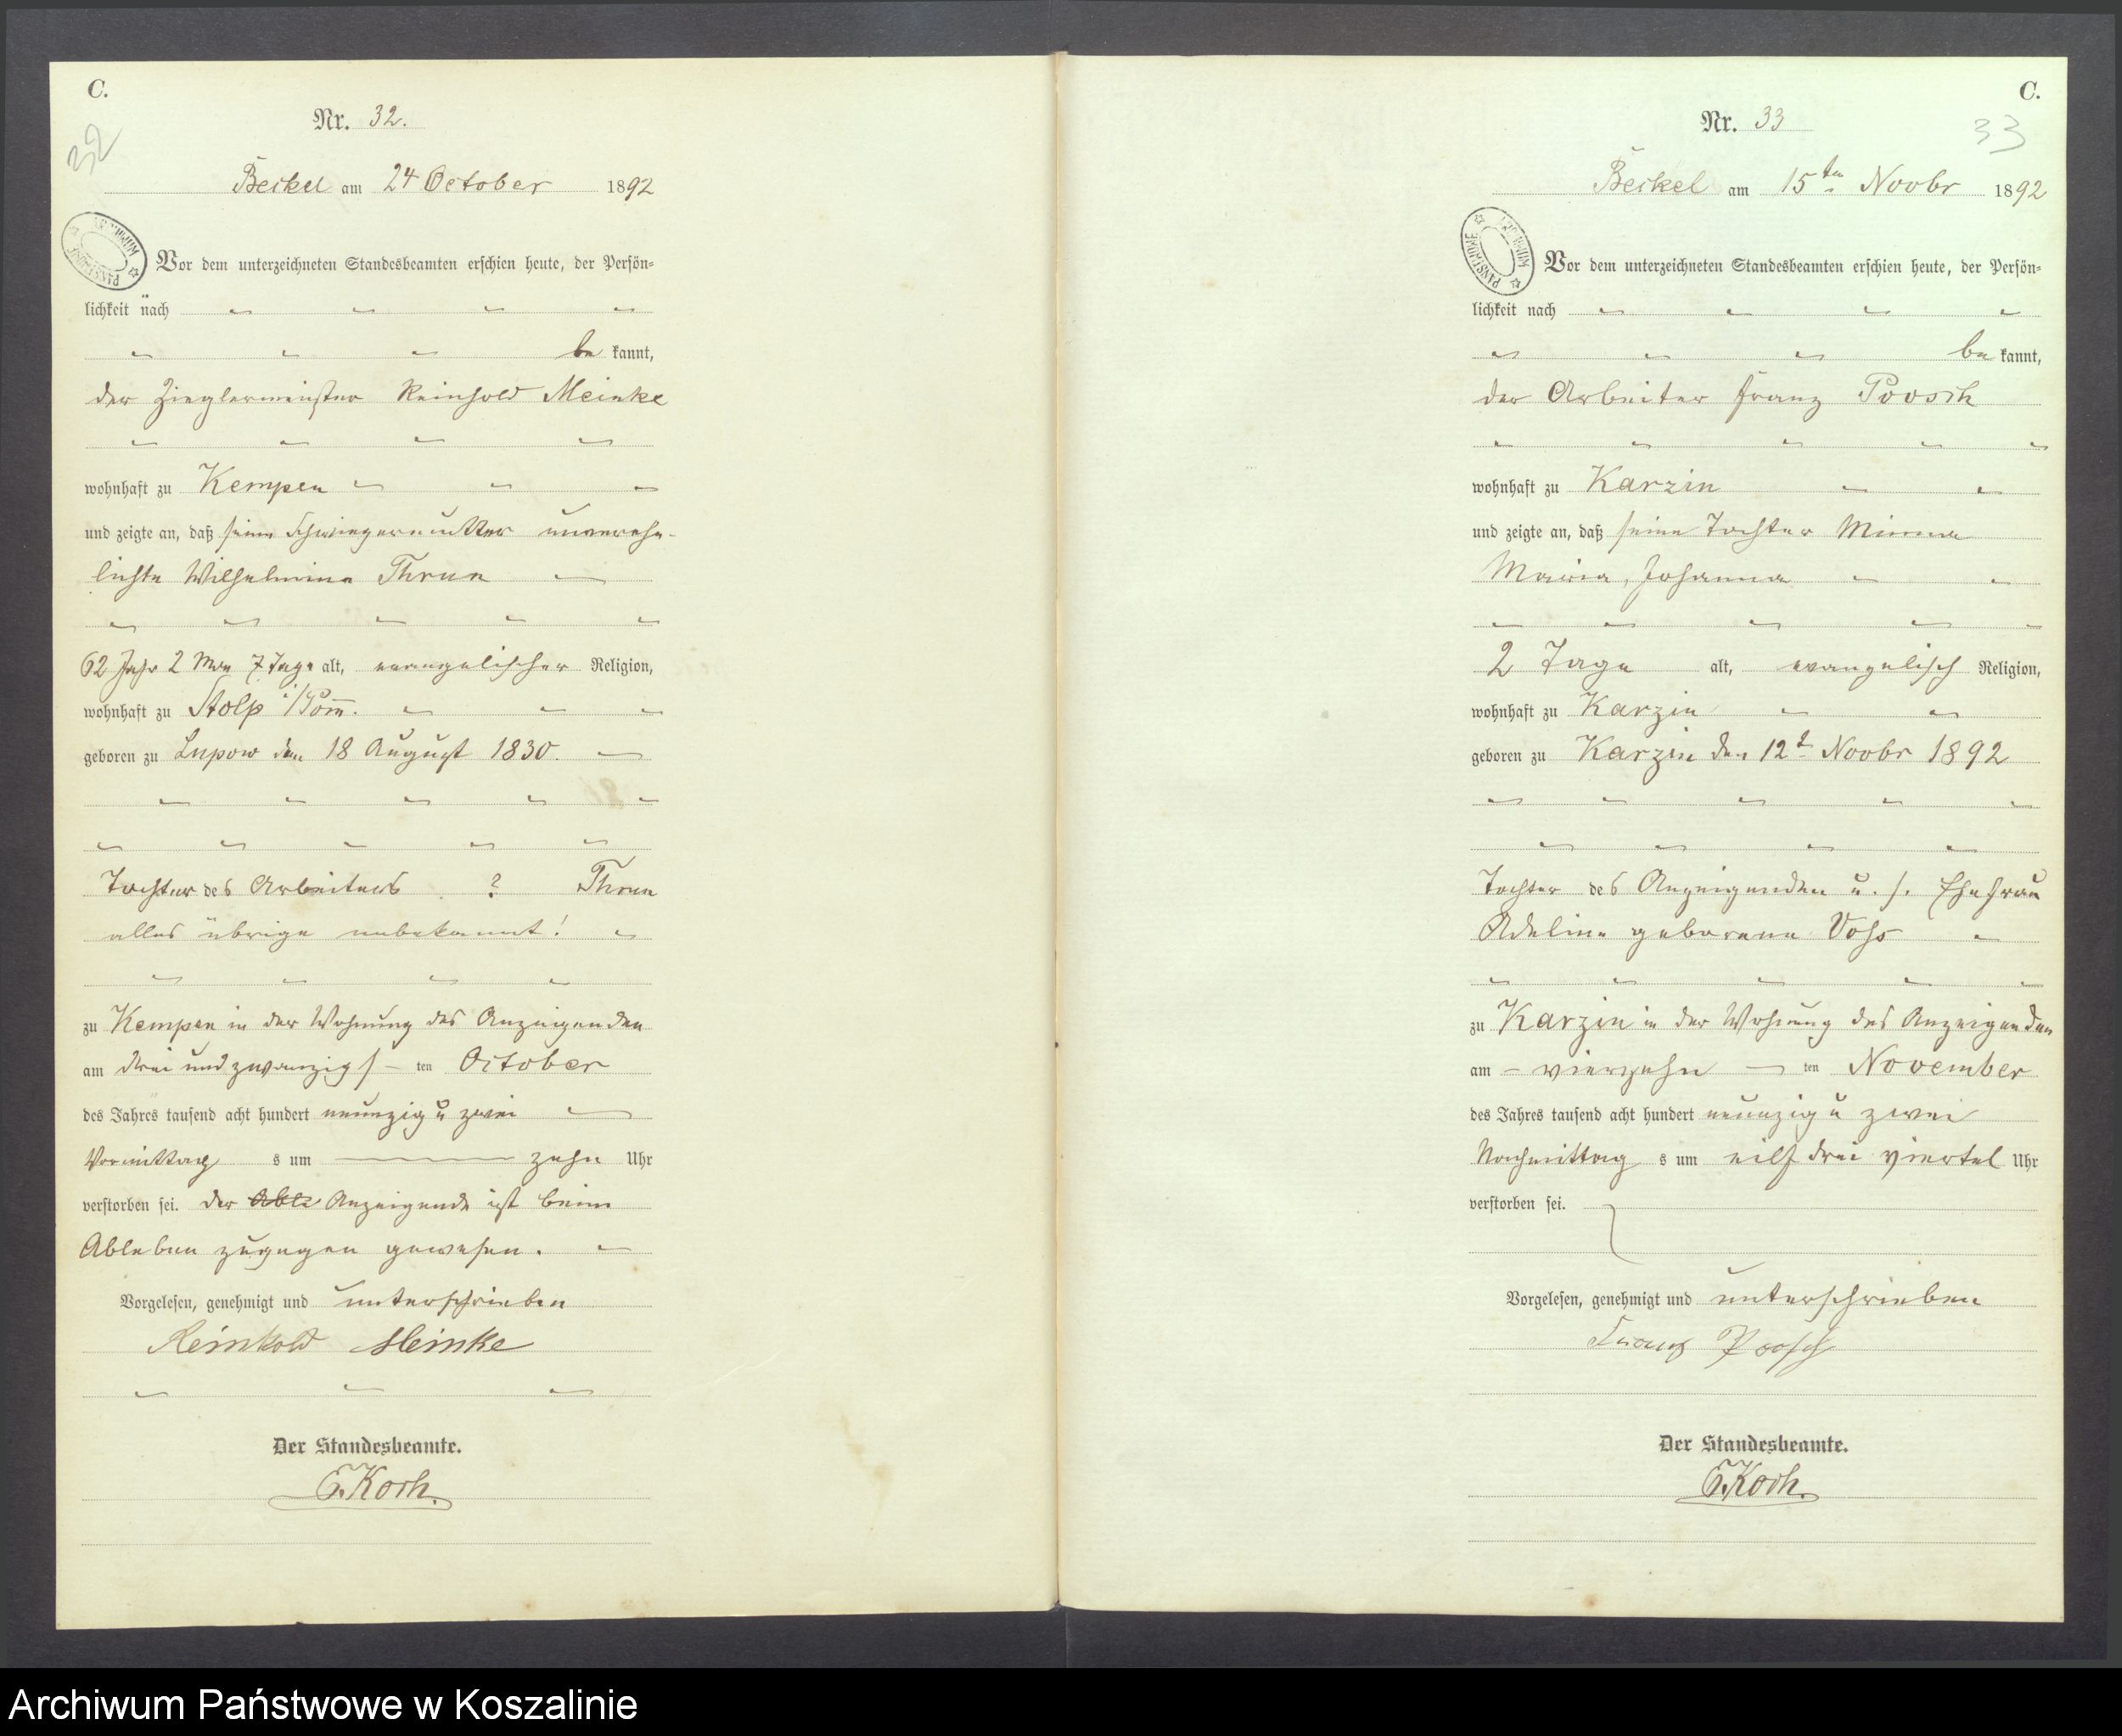 C.
Nr. 32.
32
Beckel am 24 October 1892
ARCHIWUM PAŃSTWOWE
Vor dem unterzeichneten Standesbeamten erschien heute, der Persön-
lichkeit nach
be kannt,
der Zieglermeister Reinhold Meinke
wohnhaft zu Kempen
und zeigte an, daß seine Schwiegermutter unverehe-
lichte Wilhelmine Thrun
62 Jahr 2 Mon 7 Tage alt, evangelischer Religion,
wohnhaft zu Stolp i/Pom.
geboren zu Lupow den 18 August 1830.
Tochter des Arbeiters ? Thrun
alles übrige unbekannt!
zu Kempen in der Wohnung des Anzeigenden
am drei und zwanzigs ten October
des Jahres tausend acht hundert neunzig u zwei
Vormittag s um zehn Uhr
verstorben sei. der Able Anzeigende ist beim
Ableben zugegen gewesen.
Vorgelesen, genehmigt und unterschrieben
Reinhold Meinke
Der Standesbeamte.
E. Koch.
C.
Nr. 33
33
Beckel am 15ten Novbr 1892
ARCHIWUM PAŃSTWOWE
Vor dem unterzeichneten Standesbeamten erschien heute, der Persön-
lichkeit nach
be kannt,
der Arbeiter Franz Poosch
wohnhaft zu Karzin
und zeigte an, daß seine Tochter Minna
Maria, Johanna
2 Tage alt, evangelisch Religion,
wohnhaft zu Karzin
geboren zu Karzin den 12t Novbr 1892
Tochter des Anzeigenden u. s. Ehefrau
Adeline geborene Voss
zu Karzin in der Wohnung des Anzeigenden
am – vierzehn – ten November
des Jahres tausend acht hundert neunzig u zwei
Nachmittag s um eilf drei viertel Uhr
verstorben sei.
Vorgelesen, genehmigt und unterschrieben
Franz Poosch
Der Standesbeamte.
E. Koch.
Archiwum Państwowe w Koszalinie